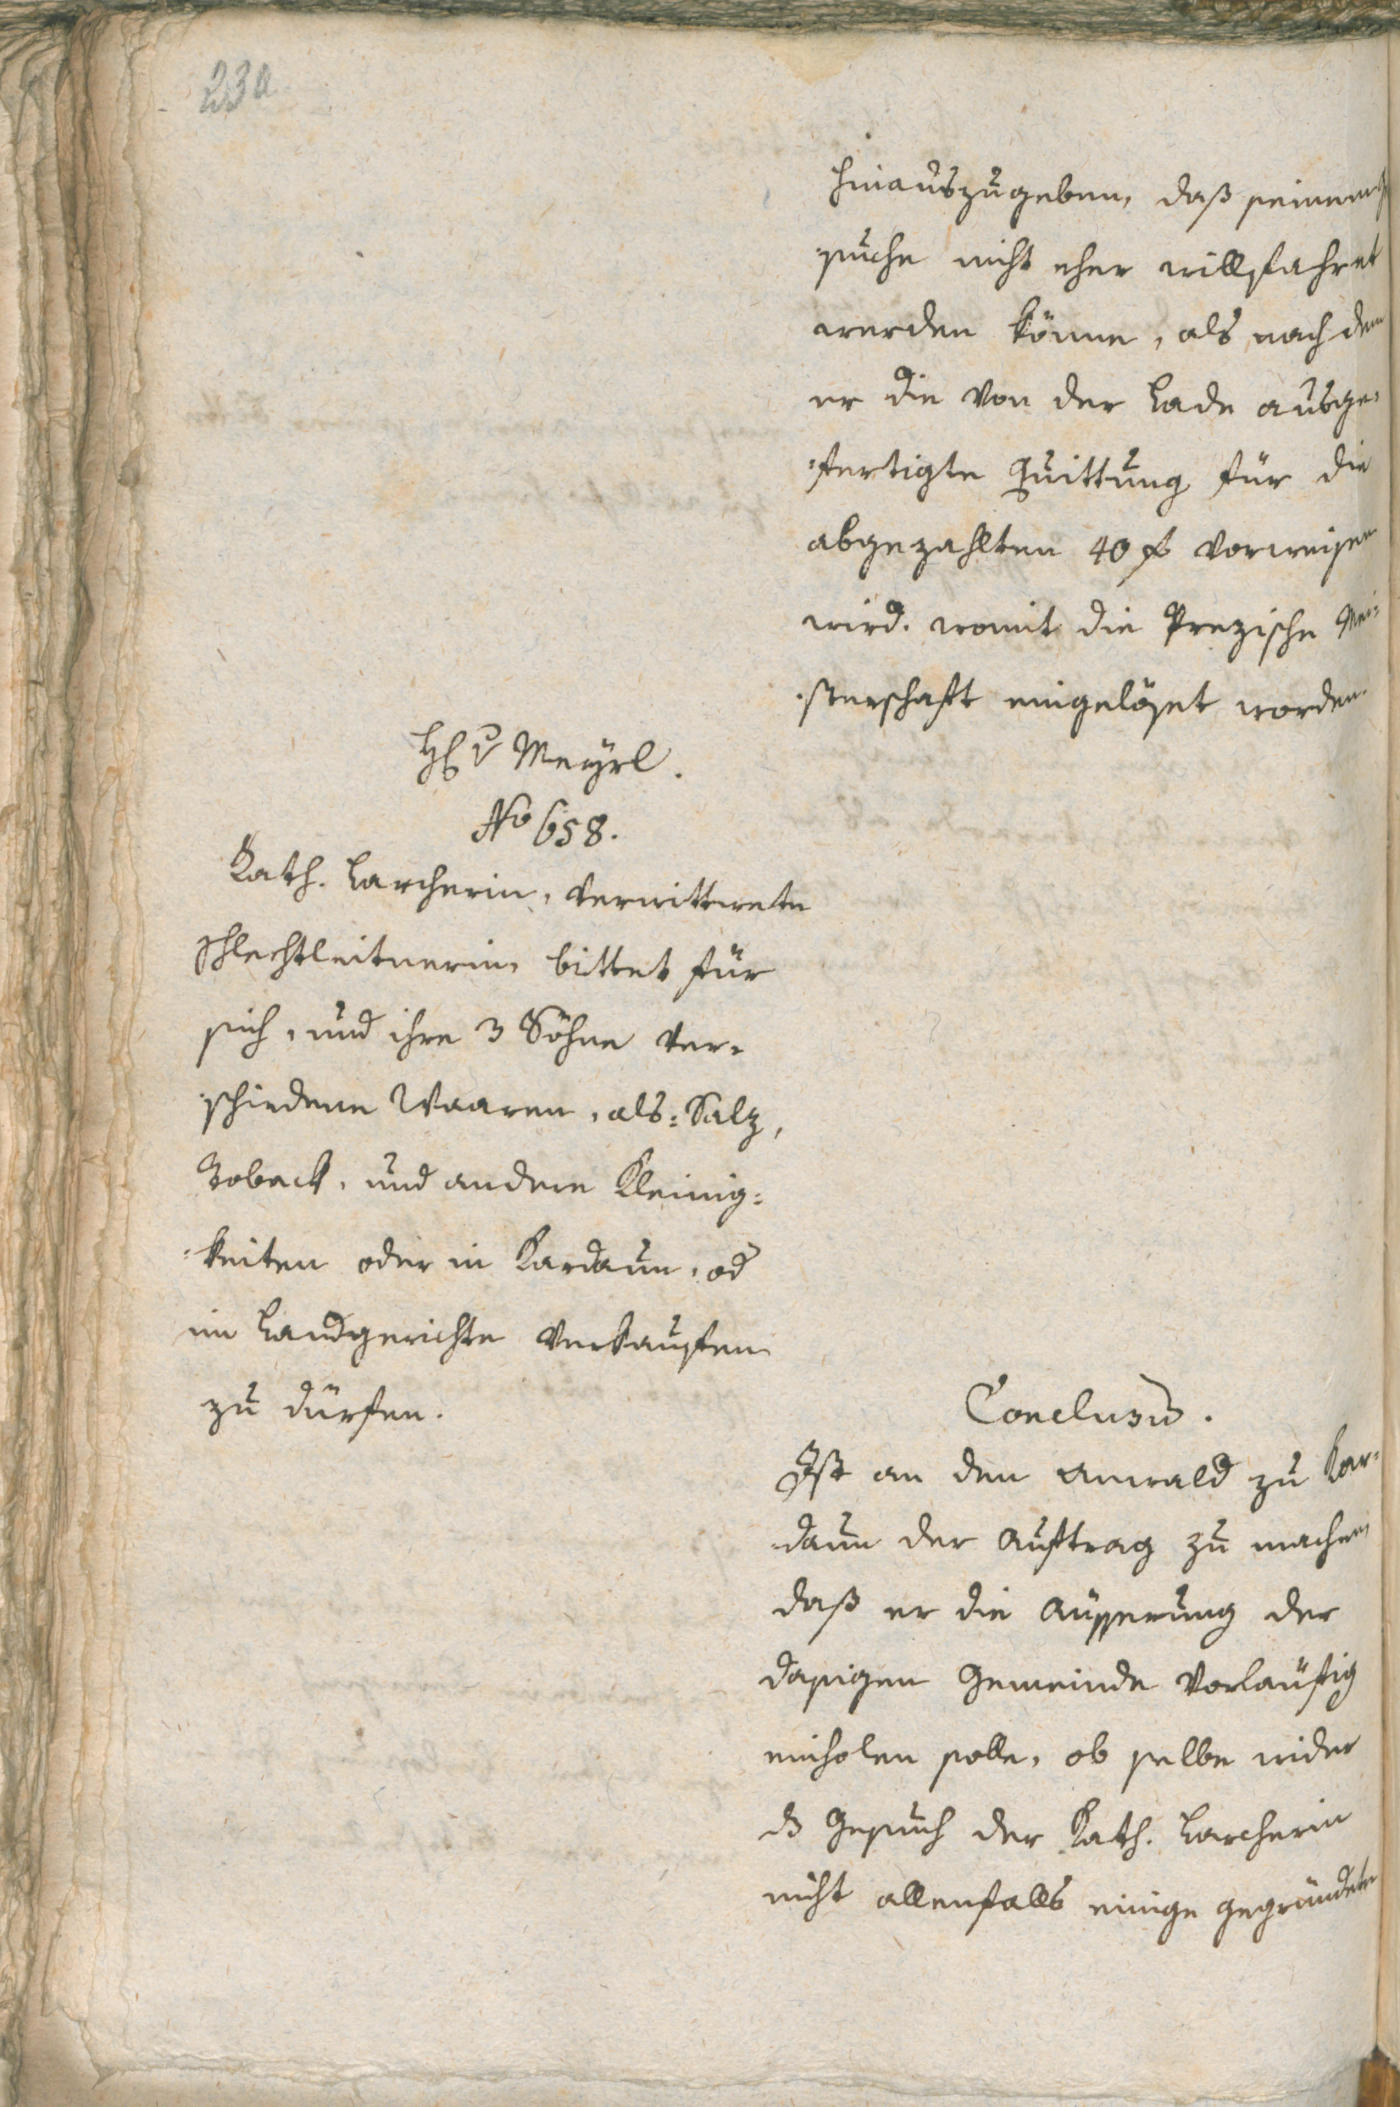 230
hinauszugeben, daß seinem Ge
suche nicht eher willfahret
werden könne, als nach dem
er die von der Lade ausge-
fertigte Quittung für die
abgezahlten 40 f vorweisen
wird. womit die Prezische Mei-
sterschaft eingelöset worden.
H v Meyrl.
No 658.
Kath. Larcherin, verwittwete
Schlechtleitnerin, bittet für
sich, und ihre 3 Söhne ver-
schiedene Waaren, als: Salz,
Toback, und andere Kleinig-
keiten oder in Kardaun, od
im Landgerichte verkaufen
zu dürfen.
Conclusum.
Ist an den Anwald zu Kar-
daun der Auftrag zu machen,
daß er die Äusserung der
dasigen Gemeinde vorläufig
einholen solle, ob selbe wider
ds Gesuch der Kath. Larcherin
nicht allenfalls einige gegründete